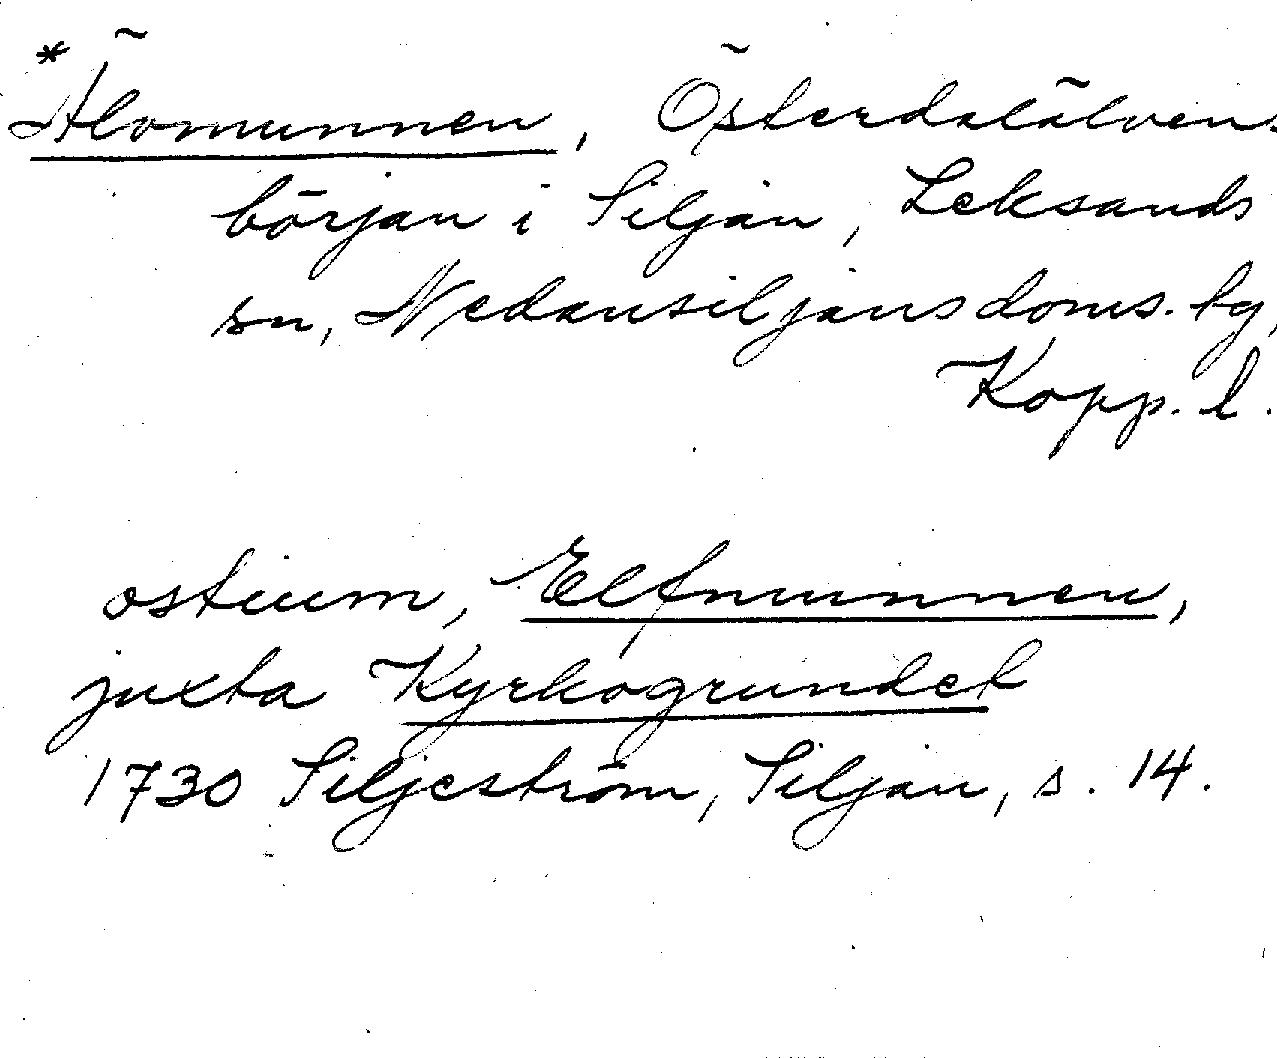 *Älvmunnen, Österdalälvens
början i Siljan, Leksands
sn, Nedansiljans doms. tg,
Kopp. l.
ostium, Elfmunnen,
juxta Kyrkogrundet
1730 Siljeström, Siljan, s. 14.